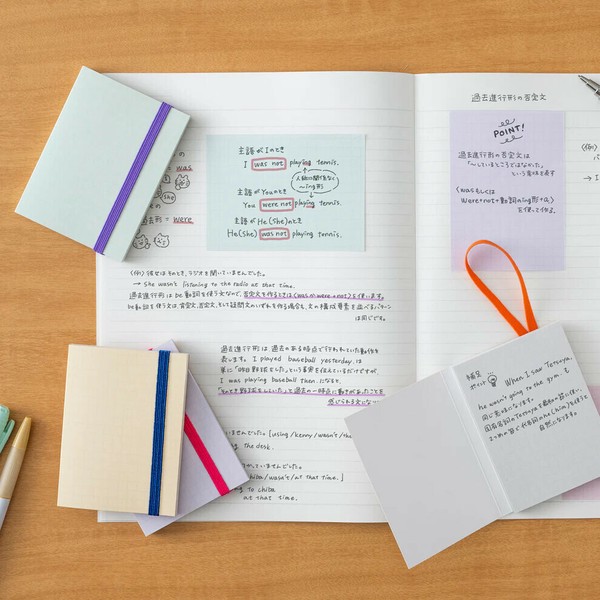 の
was
の
過去形 = were
主語がIのとき
I was not playing tennis.
人称に関係なく
〜ing形
主語がYouのとき
You were not playing tennis.
主語がHe(She)のとき
He(she) was not playing tennis.
〈例〉彼女はそのとき、ラジオを聞いていませんでした。
→ she wasn't listening to the radio at that time.
過去進行形はbe動詞を使う文なので、否定文を作るときは〈wasかwere+not〉を使います。
be動詞を使う文は、肯定文、否定文、そして疑問文のいずれを作る場合も、文の構成要素を並べるパターン
は同じです。
過去進行形は過去のある時点で行われていた動作を
表します。I played baseball yesterday.は
単に「昨日野球をした」という事実を伝えているだけですが、
I was playing baseball then.になると、
「そのとき野球をしていた」って過去の一時点に動きがあったことを
感じられる文にな
ませんでした。[using/kenny/wasn't/the
the desk.
していませんでした。
chiba/wasn't/at that time.]
ng to chiba
at that time.
過去進行形の否定文
POINT!
過去進行形の否定文は
「〜していなかった」
という意味を表す
〈wasもしくは
Were+not+動詞のing形+α〉
を使って作る。
〈例〉
→ I
補足
ポイント
When I saw Tetsuya,
he wasn't going to the gym. も
同じ意味になります。
自然になります。